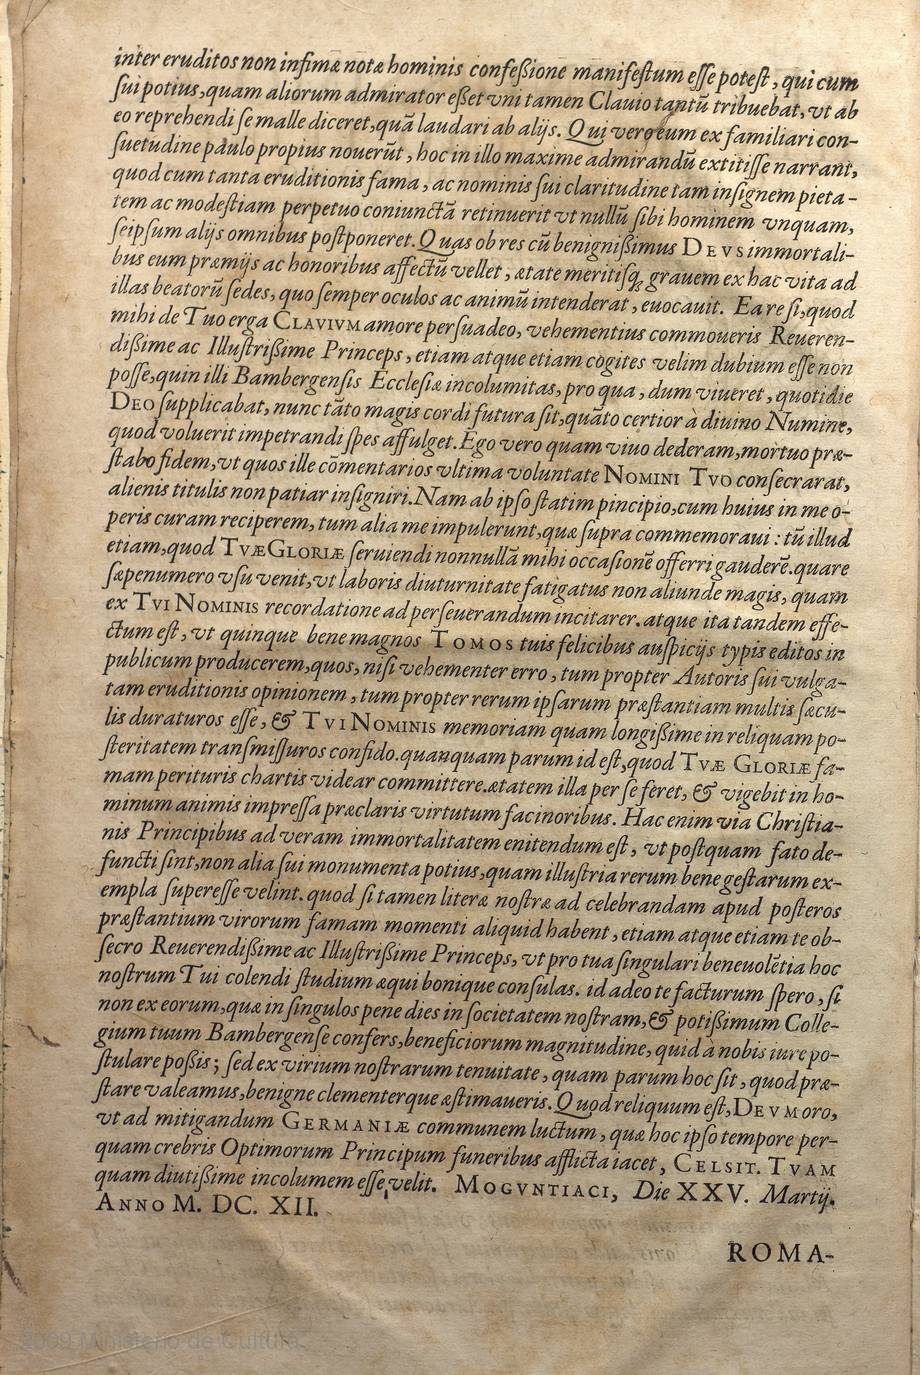 inter eruditos non infimæ notæ hominis confeſſione manifeſtum eſſe poteſt, qui cum
ſui potius, quam aliorum admirator eßet vni tamen Clauio tantũ tribuebat, vt ab
eo reprehendi ſe malle diceret, quã laudari ab alijs. Qui vero eum ex familiari con-
ſuetudine paulo propius nouerũt, hoc in illo maxime admirandũ extitiſſe narrant,
quod cum tanta eruditionis fama, ac nominis ſui claritudine tam inſignem pieta-
tem ac modeſtiam perpetuo coniunctã retinuerit vt nullũ ſibi hominem vnquam,
ſeipſum alijs omnibus poſtponeret. Quas ob res cũ benignißimus DEVS immortali-
bus eum præmijs ac honoribus affectũ vellet, ætate meritiſq; grauem ex hac vita ad
illas beatorũ ſedes, quo ſemper oculos ac animũ intenderat, euocauit. Ea re ſi, quod
mihi de Tuo erga CLAVIVM amore perſuadeo, vehementius commoueris Reueren-
dißime ac Illuſtrißime Princeps, etiam atque etiam cogites velim dubium eſſe non
poſſe, quin illi Bambergenſis Eccleſiæ incolumitas, pro qua, dum viueret, quotidie
DEO ſupplicabat, nunc tãto magis cordi futura ſit, quãto certior à diuino Numine,
quod voluerit impetrandi ſpes affulget. Ego vero quam viuo dederam, mortuo præ-
ſtabo fidem, vt quos ille cõmentarios vltima voluntate NOMINI TVO conſecrarat,
alienis titulis non patiar inſigniri. Nam ab ipſo ſtatim pincipio, cum huius in me o-
peris curam reciperem, tum alia me impulerunt, quæ ſupra commemoraui: tũ illud
etiam, quod TVÆ GLORIÆ ſeruiendi nonnullã mihi occaſionẽ offerri gauderẽ. quare
ſæpenumero vſu venit, vt laboris diuturnitate fatigatus non aliunde magis, quam
ex TVI NOMINIS recordatione ad perſeuerandum incitarer. atque ita tandem effe-
ctum eſt, vt quinque bene magnos TOMOS tuis felicibus auſpicijs typis editos in
publicum producerem, quos, niſi vehementer erro, tum propter Autoris ſui vulga-
tam eruditionis opinionem, tum propter rerum ipſarum præſtantiam multis ſæcu-
lis duraturos eſſe, & TVI NOMINIS memoriam quam longißime in reliquam po-
ſteritatem tranſmiſſuros confido. quanquam parum id eſt, quod TVÆ GLORIÆ fa-
mam perituris chartis videar committere. ætatem illa per ſe feret, & vigebit in ho-
minum animis impreſſa præclaris virtutum facinoribus. Hac enim via Chriſtia-
nis Principibus ad veram immortalitatem enitendum eſt, vt poſtquam fato de-
functi ſint, non alia ſui monumenta potius, quam illuſtria rerum bene geſtarum ex-
empla ſupereſſe velint. quod ſi tamen literæ noſtræ ad celebrandam apud poſteros
præſtantium virorum famam momenti aliquid habent, etiam atque etiam te ob-
ſecro Reuerendißime ac Illuſtrißime Princeps, vt pro tua ſingulari beneuolẽtia hoc
noſtrum Tui colendi ſtudium æqui bonique conſulas. id adeo te facturum ſpero, ſi
non ex eorum, quæ in ſingulos pene dies in ſocietatem noſtram, & potißimum Colle-
gium tuum Bambergenſe confers, beneficiorum magnitudine, quid à nobis iure po-
ſtulare poßis; ſed ex virium noſtrarum tenuitate, quam parum hoc ſit, quod præ-
ſtare valeamus, benigne clementerque æſtimaueris. Quod reliquum eſt, DEVM oro,
vt ad mitigandum GERMANIÆ communem luctum, quæ hoc ipſo tempore per-
quam crebris Optimorum Principum funeribus afflicta iacet, CELSIT. TVAM
quam diutißime incolumem eſſe velit. MOGVNTIACI, Die XXV. Martij.
ANNO M. DC. XII.
ROMA-
2009 Ministerio de Cultura